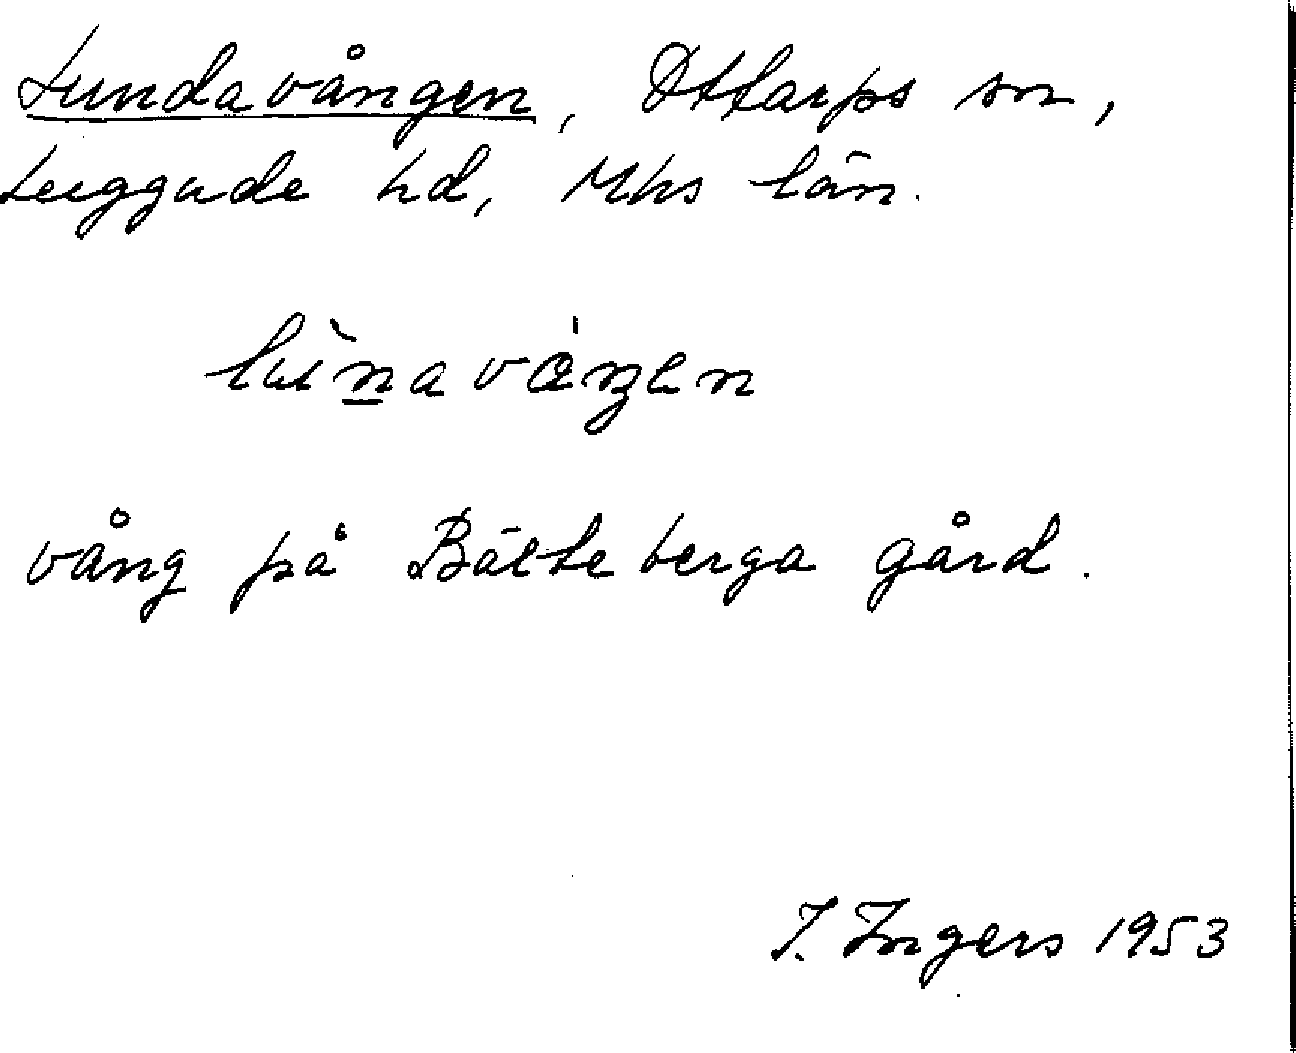 Lundavången, Ottarps sn,
Luggude hd, Mhs län.
lu̇̀n̲avæ̇ŋen
vång på Bälteberga gård.
I. Ingers 1953